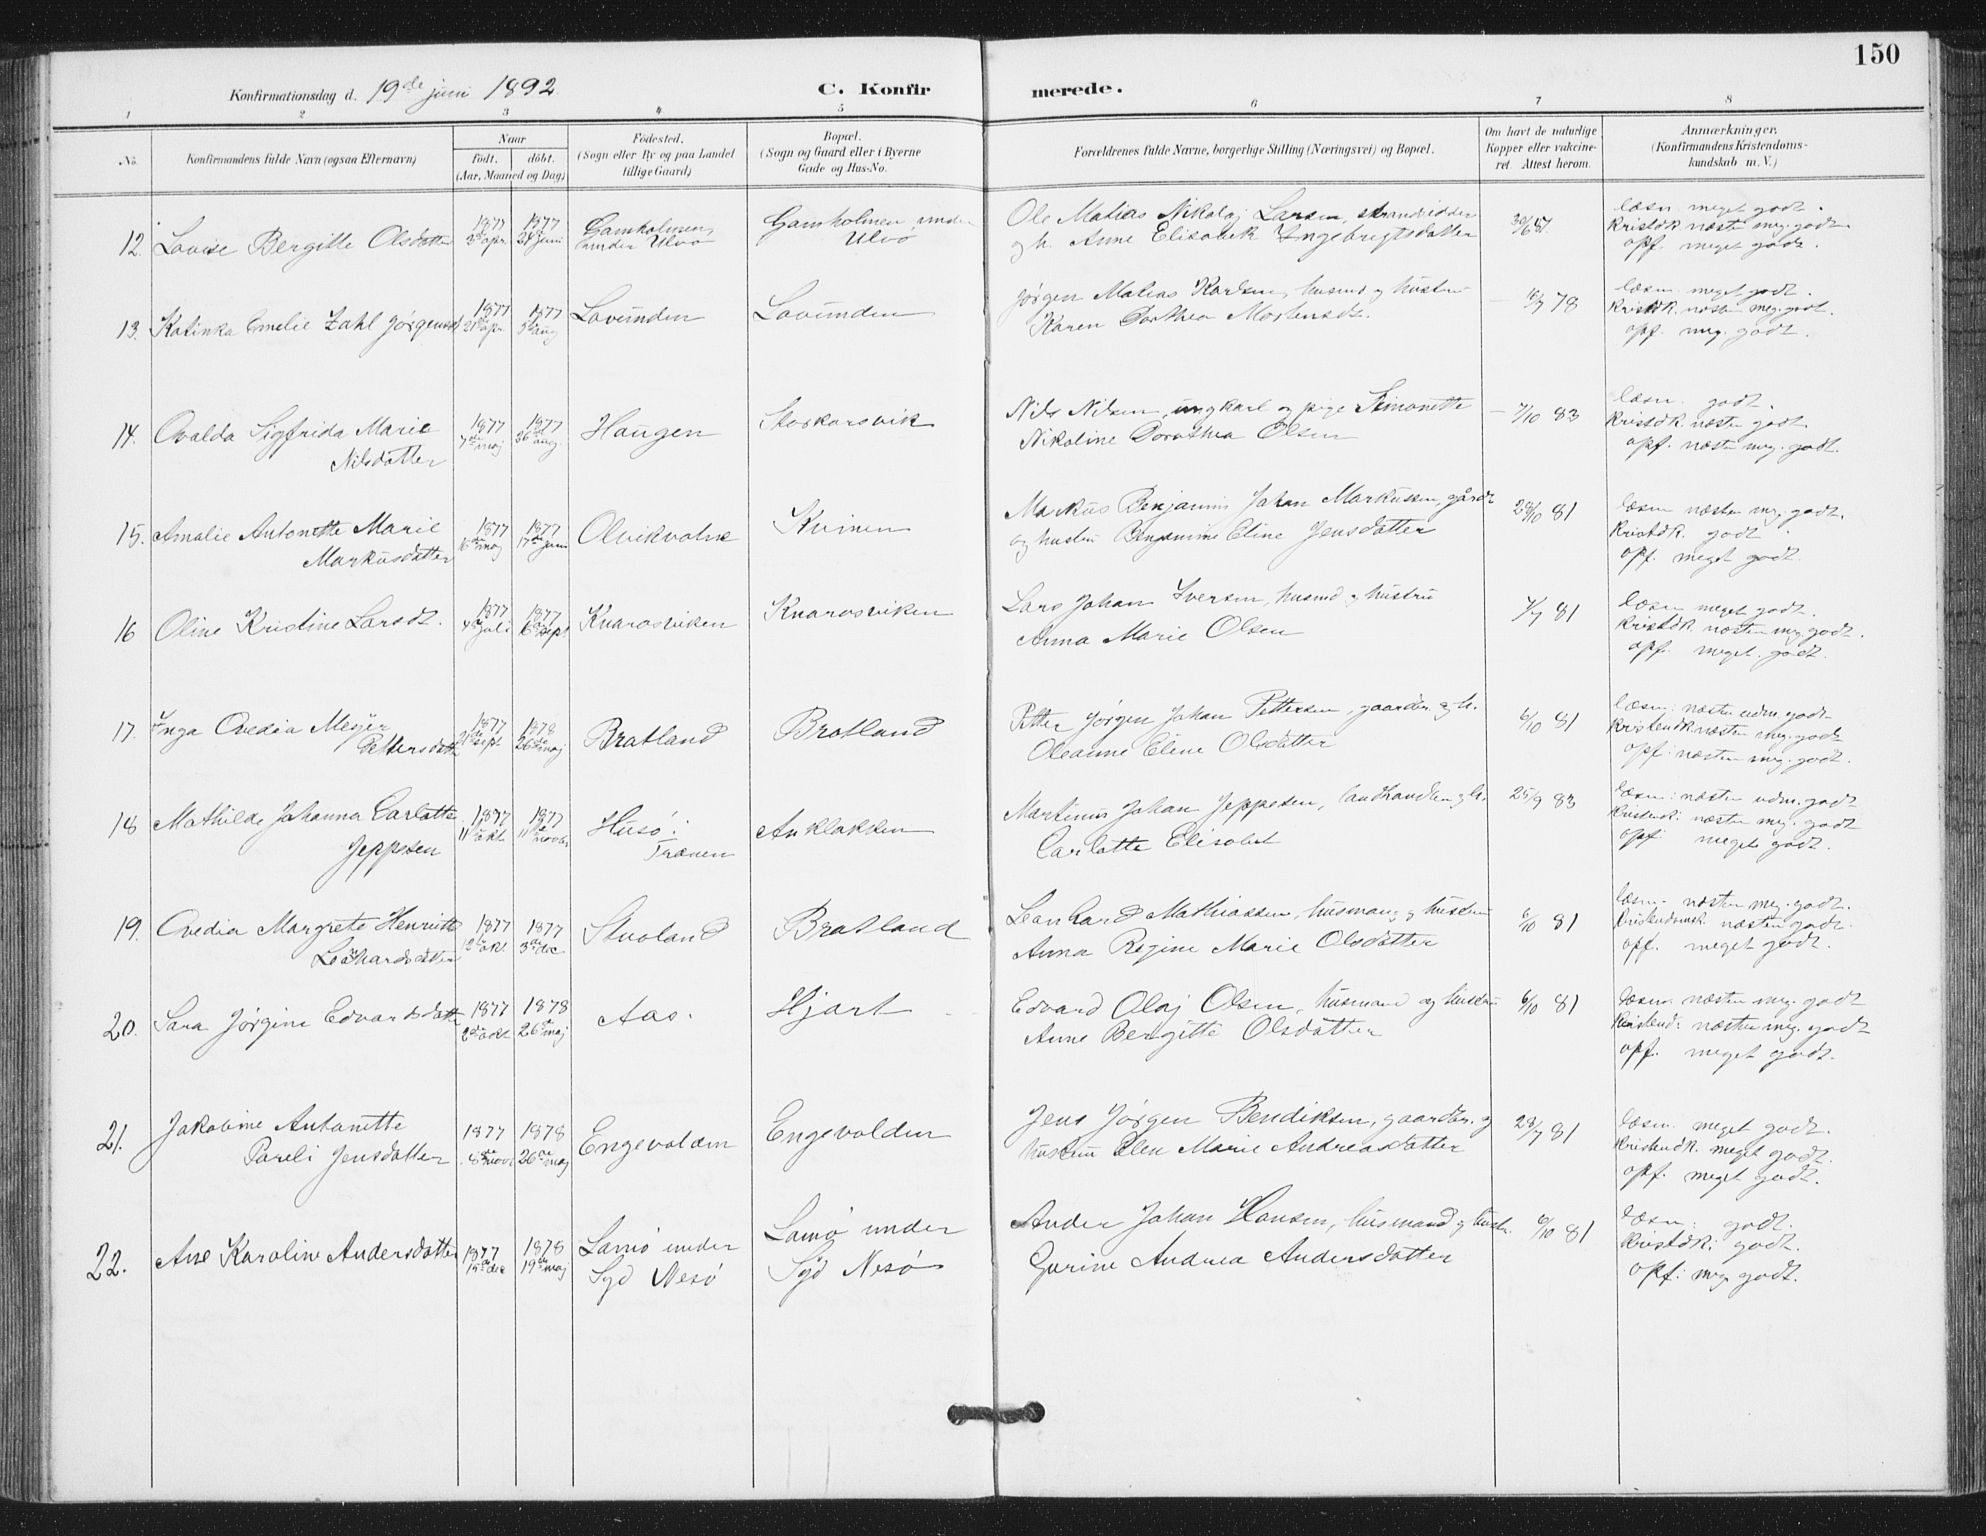 150
Konfirmationsdag d. 19de juni 1892
C. Konfirmerede.
1 2 3 4 5 6 7 8
No.
Konfirmandens fulde Navn (ogsaa Efternavn)
Naar
födt. döbt.
(Aar, Maaned og Dag)
Födested.
(Sogn eller By og paa Landet
tillige Gaard)
Bopæl.
(Sogn og Gaard eller i Byerne
Gade og Hus-No.
Forældrenes fulde Navne, borgerlige Stilling (Næringsvei) og Bopæl.
Om havt de naturlige
Kopper eller vakcine-
ret Attest herom.
Anmærkninger.
(Konfirmandens Kristendoms-
kundskab m. V.)
12. Lovise Bergitte Olsdatter
1877 3de apr.
1877 24de juni
Gamholmen
under Ulvø
Gamholmen under
Ulvø
Ole Matias Nikolaj Larsen, strandsidder
og h. Anne Elisabek Ingebrigtsdatter
læsn. meget godt.
Kristdk næsten meg. godt.
opf. meget godt.
13. Katinka Emelie Zahl Jørgensd
1877
1877 5te aug
Lovunden
Lovunden
Jørgen Matias Karlsen, husmd og hustru
Karen Dorthea Mortensdtr.
78
læsn. meget godt.
Kristdk. næsten meg. godt.
opf. meg. godt.
14. Ovalda Sigfrida Marie
Nilsdatter
1877 7de maj
1877 26de aug.
Haugen
Stoskarsvik
Nils Nilsen, ungkarl og pige Simonette
Nikoline Dorothea Olsen
7/10 83
læsn. godt.
Kristdk. næsten godt.
opf. næsten meg. godt.
15. Amalie Antonette Marie
Markusdatter
1877 16de maj
1877 17de juni
Olvikvolne
Kvinen
Markus Benjamin Johan Markussen, gårdr
og hustru Benjamine Eline Jensdatter
29/10 81
læsn næsten meg. godt.
Kristdk. godt.
opf. meget godt.
16 Oline Kristine Larsdt.
1877 4de juli
1877 16de sept
Knarosviken
Knarosviken
Lars Johan Iversen, husmd og hustru
Anna Marie Olsen
7/7 81
læsn meget godt.
Kristdk næsten meg. godt.
opf. meget. godt.
17. Inga Ovedia Mejer
Pettersdatt
1877 21de sept
1878 26de maj
Bratland
Bratland
Petter Jørgen Johan Pettersen, gaardm. og h.
Oleanne Eline Olsdatter
6/10 81
læsn: næsten udm. godt
Kristendk næsten meg. godt
opf: næsten meg. godt.
18 Mathilde Johanna Carlotte
Jeppesen
1877 11te okt
1877 11te novbr
Husø i
Trænen
Anklakken
Martinus Johan Jeppesen, landhandler og h.
Carlotte Elisabet
25/9 83
læsn: næsten udm. godt
Kristenk: næsten meg. godt
opf meget godt.
19. Ovedia Margrete Henriette
Leonhardsdatter
1877 12te okt
1877 3de dec
Stuoland
Bratland
Leonhard Mathiassen, husmand og hustru
Anna Regine Marie Olsdatter
6/10 81
læsn. næsten meg. godt.
Kristendomsk. næsten godt.
opf. meget godt.
20. Sara Jørgine Edvardsdatter
1877 2de okt
1878 26de maj
Aas.
Hjart
Edvard Olaj Olsen, husmand og hustru
Anne Bergitte Olsdatter
6/10 81
læsn. næsten meg. godt
Kristend: næsten meg. godt
opf. meget godt.
21. Jakobine Antonette
Pareli Jensdatter
1877 8de novr
1878 26de maj
Engevolden
Engevolden
Jens Jørgen Bendiksen, gaardbr. og
hustru Elen Marie Andreasdatter
28/7 81
læsn. meget godt.
Kristendk. meget godt.
opf. meget godt.
22. Ane Karoline Andersdatter
1877 15de dec
1878 19de maj
Lamø under
Syd Nesø
Lamø under
Syd Nesø
Ander Johan Hansen, husmand og hustr.
Gurine Andrea Andersdatter
6/10 81
læsn: godt.
Kristdk: godt.
opf: meg. godt.